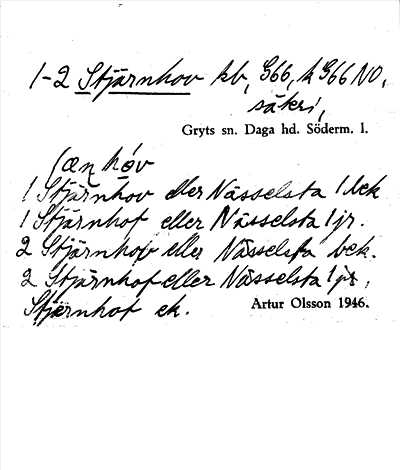 1-2 Stjärnhov kb, G66, k G66 NO,
säkri,
Gryts sn. Daga hd. Söderm. l.
ʃæn hóv
1 Stjärnhov eller Nässelsta 1 bek
1 Stjärnhof eller Nässelsta 1 jr.
2 Stjärnhov eller Nässelsta bek.
2 Stjärnhof eller Nässelsta 1 jr,
Stjärnhof ek.
Artur Olsson 1946.